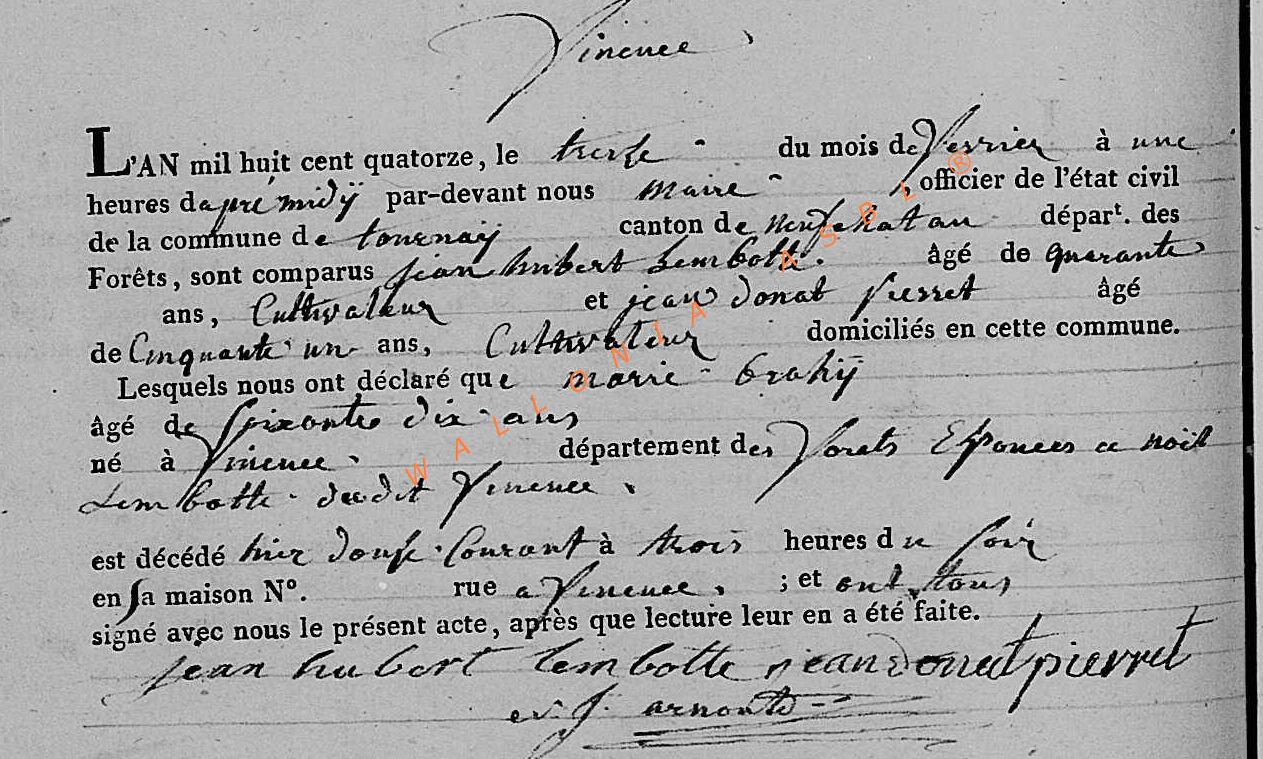 Vinence
L'AN mil huit cent quatorze, le treise du mois de Fevrier à une
heures d apré midÿ par-devant nous maire, officier de l'état civil
de la commune de tournay canton de neufchatau départ. des
Forêts, sont comparus jean hubert Lembotte. âgé de quarante
ans, Cultivateur et jean donat pierret âgé
de Cinquante un ans, Cultivateur domiciliés en cette commune.
Lesquels nous ont déclaré que marie brahÿ
âgé de soixante dix ans
né à Vinence. département des Forets Epouces a noël
Lembotte dudit Vinence.
est décédé hier douse Courant à trois heures du soir
en sa maison N°. rue a Vinence. ; et ont tous
signé avec nous le présent acte, après que lecture leur en a été faite.
jean hubert lembotte jean donat pierret
arnould
WALLONIA ASBL ®